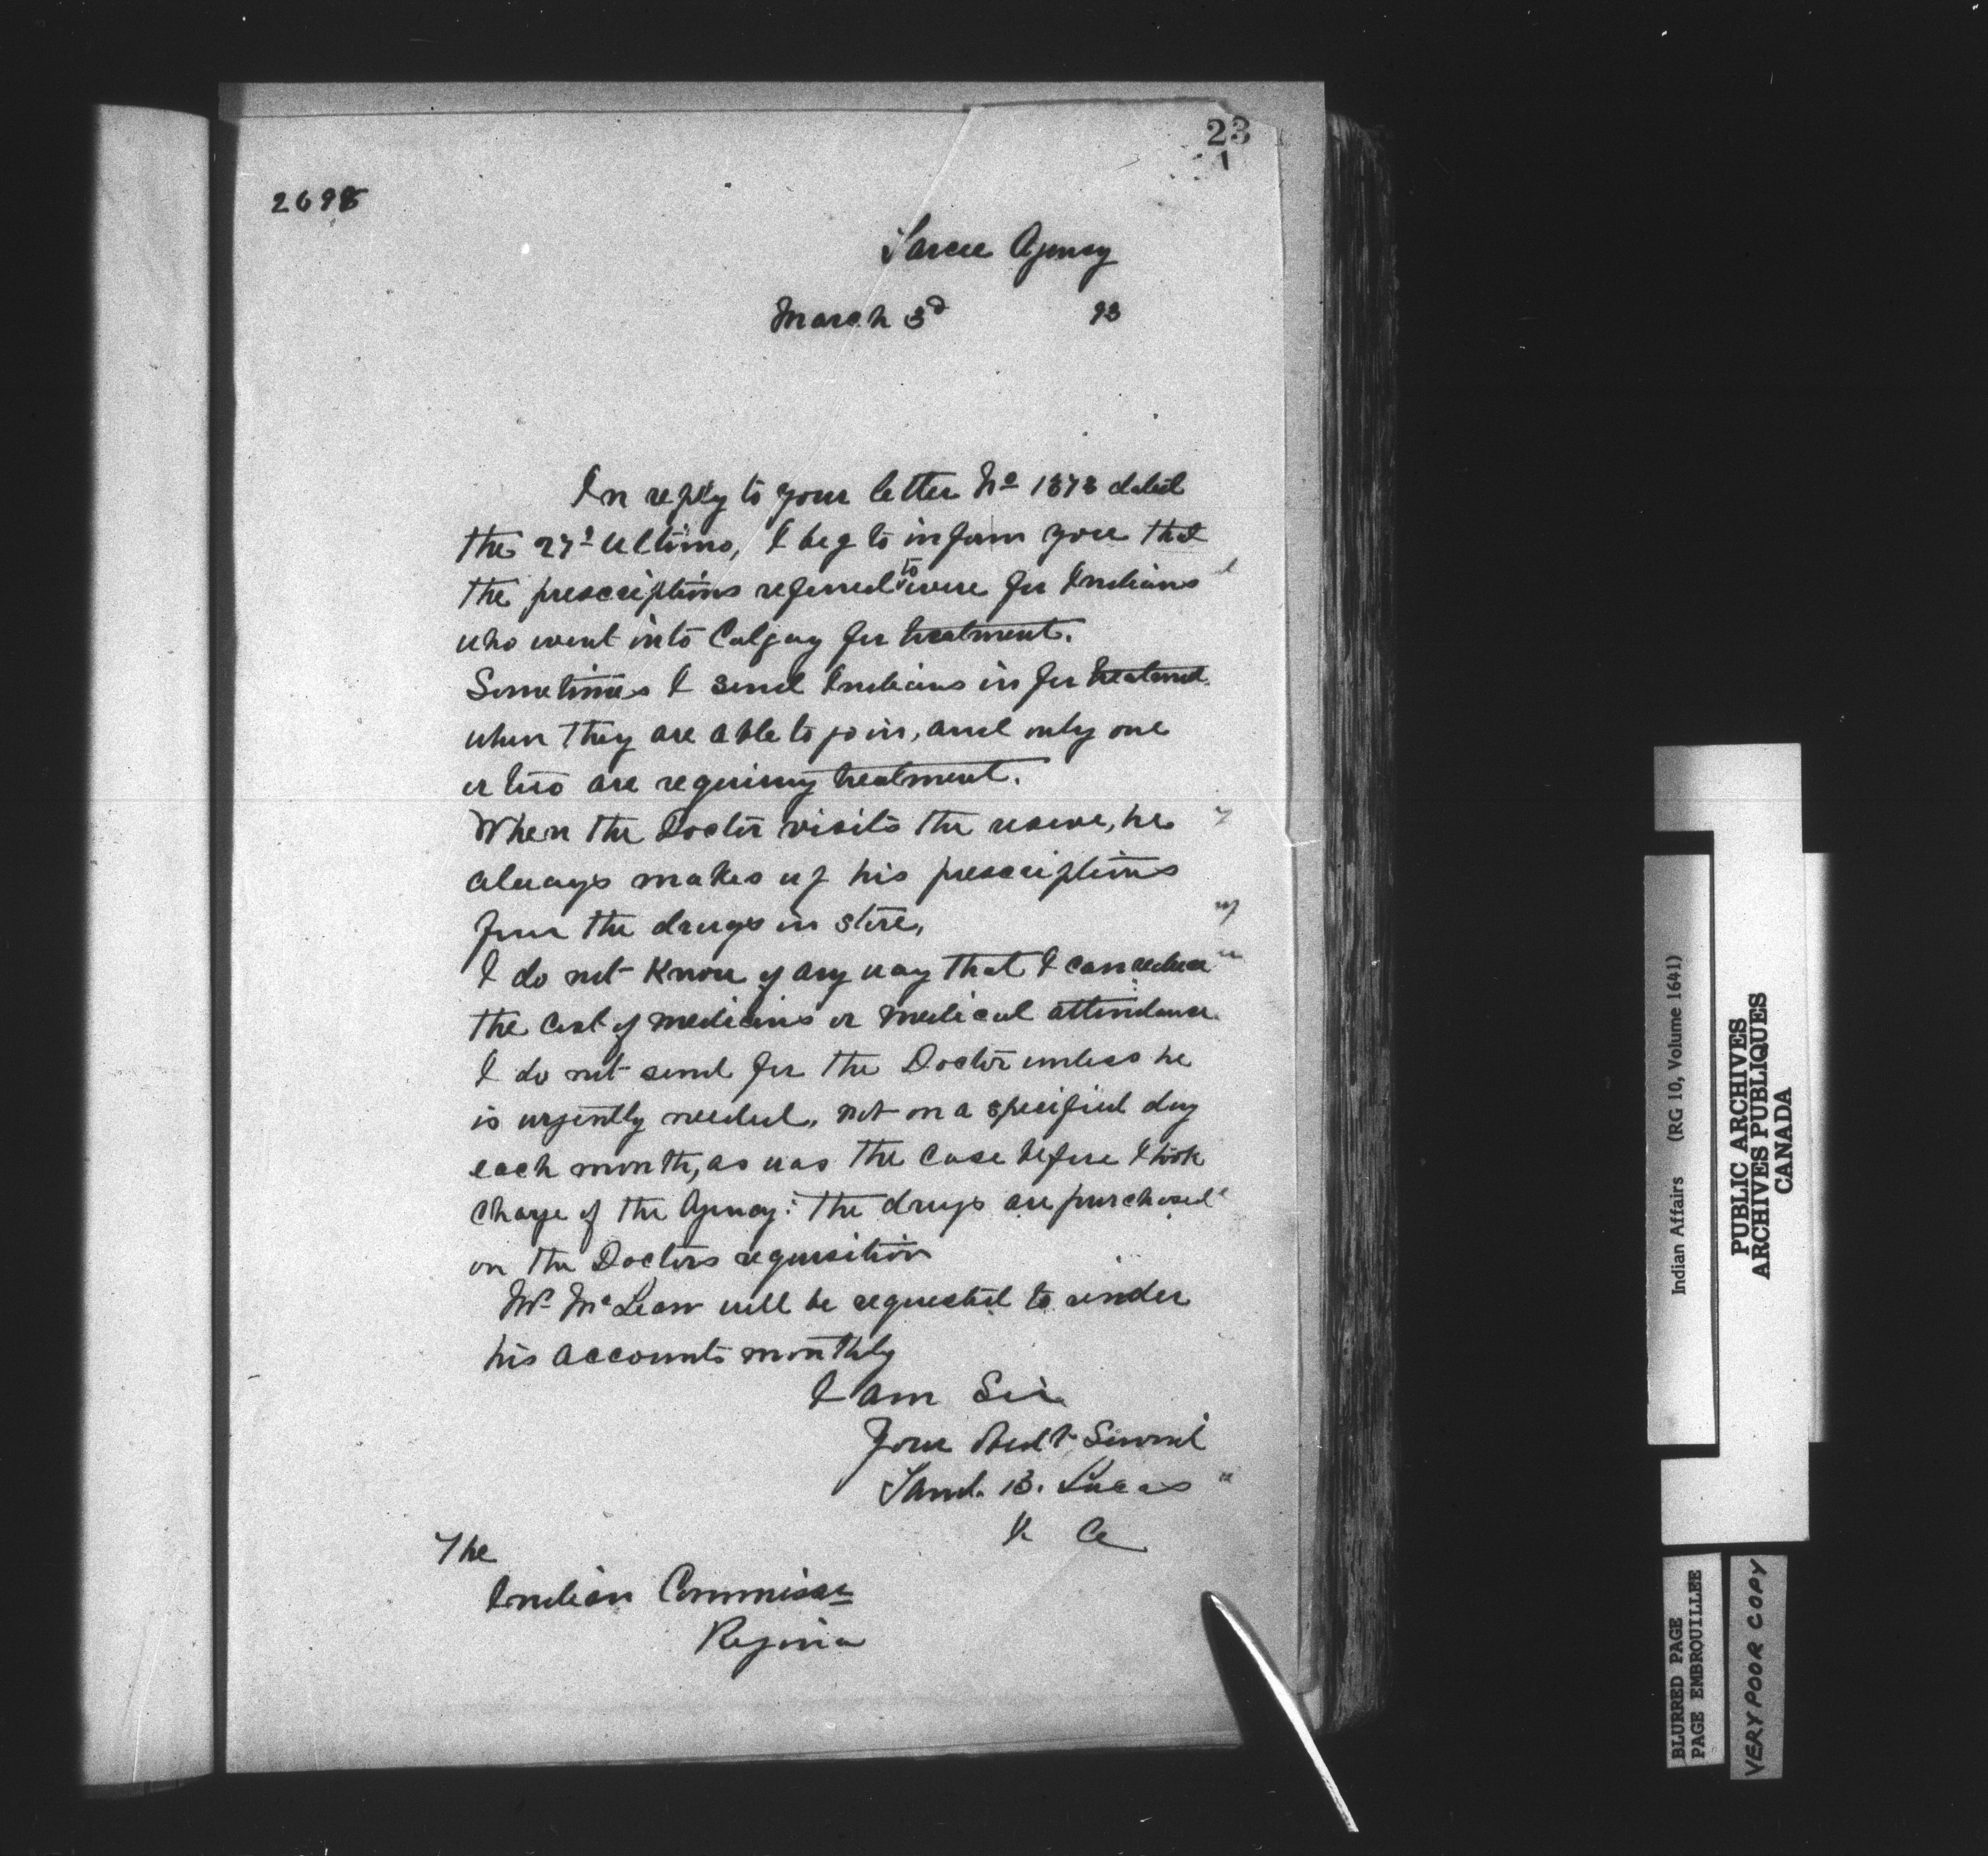 23
2698
Sarcee Agency
March 3d 93
In reply to your letter No 1373 dated
the 27th Ultimo, I beg to inform you that
the prescriptions referred to were for Indians
who went into Calgary for treatment.
Sometimes I send Indians in for treatment
when they are able to join, and only one
or two are requiring treatment.
When the Doctor visits the reserve, he
always makes up his prescriptions
from the drugs in store,
I do not know of any way that I can reduce
the cost of medicines or medical attendance.
I do not send for the Doctor unless he
is urgently needed, not on a specified day
each month, as was the case before I took
charge of the Agency: the drugs are purchased
on the Doctors requisition
Mr McLean will be requested to render
his accounts monthly
I am Sir
Your Obedt Servant
Saml. B. Lucas
I. A
The
Indian Commissr
Regina
Indian Affairs (RG 10, Volume 1641)
PUBLIC ARCHIVES
ARCHIVES PUBLIQUES
CANADA
BLURRED PAGE
PAGE EMBROUILLEE
VERY POOR COPY